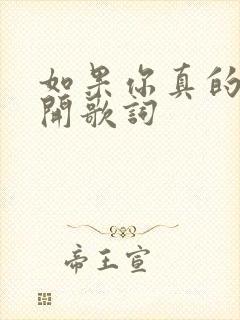 如果你真的
開歌詞
帝王宣